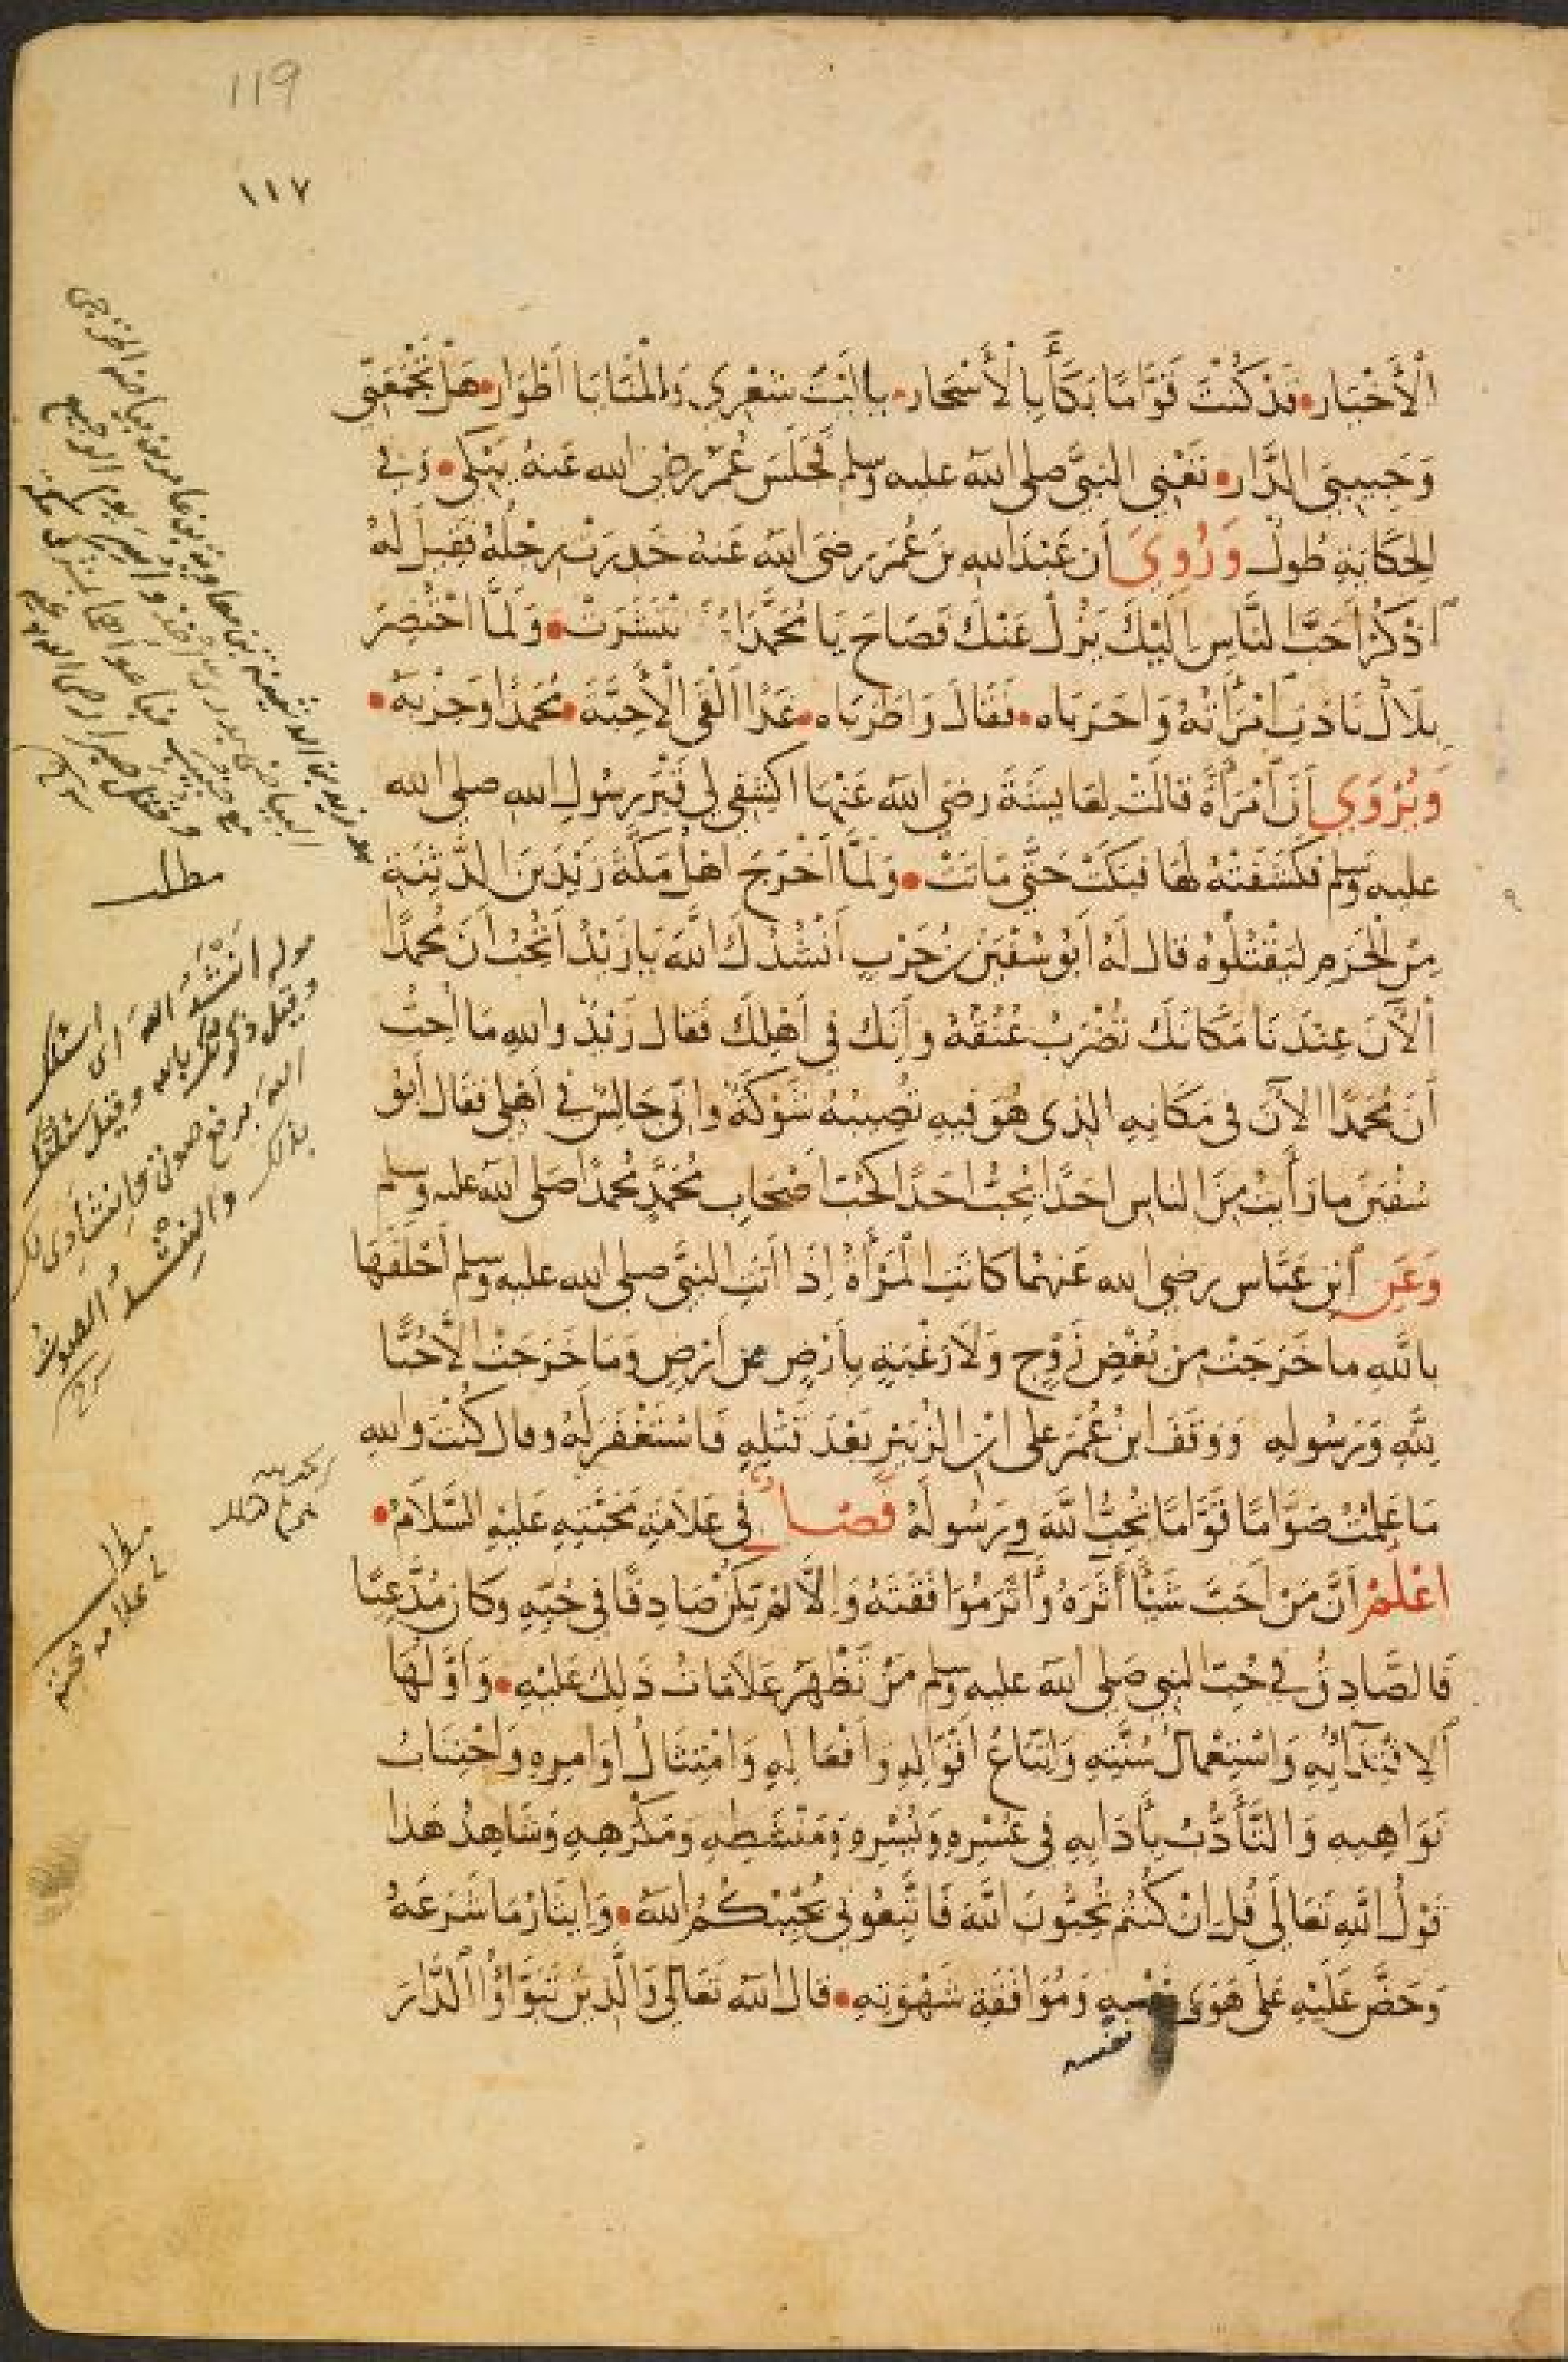 119
١١٧
الْأَخْيَار • قَدْ كُنْتَ قَوَّامًا بَكَّاءً بِالْأَسْحَار • يالَيْتَ شِعْرِي وَالْمَنَايَا أَطْوَار • هَلْ تَجْمَعَنِّي
وَحَبِيبِيَ الدَّار • تَعْنِي النَّبِيَّ صلى الله عليه وسلم فَجَلَسَ عُمَرُ رضى الله عَنهُ يَبْكِي • وَفِي
الحِكَايَةِ طُولٌ وَرُوِيَ أَن عَبْدَ اللهِ بنَ عُمَرَ رضىَ اللهُ عَنهُ خَدِرَتْ رِجْلُهُ فَقِيلَ لَهُ
اُذْكُرْ أَحَبَّ النَّاسِ إِلَيْكَ يَزُلْ عَنْكَ فَصَاحَ يَا مُحَمَّدَاهُ فَانْتَشَرَتْ • وَلَمَّا احْتُضِرَ
بِلَالٌ نَادَتِ امْرَأَتُهُ وَاحَرَبَاه • فَقَالَ وَاطَرَبَاه • غَدًا أَلْقَى الْأَحِبَّةَ • مُحَمَّدًا وَحِزْبَهُ •
وَيُرْوَى أَنَّ امْرَأَةً قالَتْ لِعَايِشَةَ رضىَ اللهُ عَنْهَا اكْشِفِى لِي قَبْرَ رسُولِ اللهِ صلى الله
عليه وسلم فكَشَفَتْهُ لَهَا فَبَكَتْ حَتَّى مَاتَتْ • وَلَمَّا أَخْرَجَ اهْلُ مَكَّةَ زَيْدَ بْنَ الدَّثِنَةِ
مِنَ الْحَرَمِ لِيَقْتُلُوهُ قال لَهُ أَبُو سُفْيَنَ بْنُ حَرْبٍ أَنْشُدُكَ اللَّهَ يَا زَيْدُ أَتُحِبُّ أَنَّ مُحَمَّدًا
الْآنَ عِنْدَنَا مَكَانَكَ تُضْرَبُ عُنُقُهُ وإِنَّكَ فِي أَهْلِكَ فَقال زَيْدٌ واللهِ مَا اُحِبُّ
أَنَّ مُحَمَّدًا الآنَ فى مَكَانِهِ الذى هُوَ فِيهِ تُصِيبُهُ شَوْكَةٌ وإنِّى جَالِسٌ فِي أَهْلِى فقَال أَبُو
سُفْيَنَ ما رَأَيتُ مِنَ الناسِ احَدًا يُحِبُّ احَدًا كَحُبِّ اَصْحَابِ مُحَمَّدٍ مُحَمَّدًا صَلى اللهُ عليه وسلم
وَعَنِ ابنِ عَبَّاسٍ رضى الله عَنهُمَا كانَتِ الْمَرْأَةُ إِذَا أَتَتِ النبيَّ صلى الله عليه وسلم اَحْلَفَهَا
باللَّهِ ما خَرَجَتْ مِنْ بُغْضِ زَوْجٍ وَلَا رَغْبَةٍ بِأَرْضٍ عن اَرْضٍ وَمَا خَرَجَتْ إلَّا حُبًّا
لِلَّهِ وَرَسُولِهِ وَوَقَفَ ابنُ عُمَرَ على ابْنِ الزُّبَيْرِ بَعْدَ قَتْلِهِ فَاسْتَغْفَرَ لَهُ وقال كُنْتَ واللهِ
مَا عَلِمْتُ صَوَّامًا قَوَّامًا تُحِبُّ اللَّهَ ورَسُولَهُ فَصْـل فى عَلَامَةِ مَحَبَّتِهِ عَلَيْهِ السَّلَامُ •
اعْلَمْ أَنَّ مَنْ اَحَبَّ شَيْئًا أَثَرَهُ وَأَثَرَ مُوَافَقَتَهُ وَإِلَّا لَمْ يَكُنْ صَادِقًا فِي حُبِّهِ وَكَانَ مُدَّعِيًا
فَالصَّادِقُ فِي حُبِّ النبي صَلى اللهُ عليه وسلم مَنْ تَظْهَرُ عَلَامَاتُ ذَلِكَ عَلَيْهِ • وَأَوَّلُهَا
الِاقْتِدَآءُ بِهِ وَاسْتِعْمَالُ سُنَّتِهِ وَاتِّبَاعُ أَقْوَالِهِ وَأَفْعَالِهِ وَامْتِثَالُ اَوَامِرِهِ وَاجْتِنَابُ
نَوَاهِيهِ وَالتَّأَدُّبُ بِأَدَابِهِ فِي عُسْرِهِ وَيُسْرِهِ وَمَنْشَطِهِ وَمَكْرَهِهِ وَشَاهِدُ هَذا
قَوْلُ اللهِ تَعَالَى قُل اِنْ كُنْتُمْ تُحِبُّونَ اللَّهَ فَاتَّبِعُونِي يُحْبِبْكُمُ اللَّهُ • وَإِيثَارُ مَا شَرَعَهُ
وَحَضَّ عَلَيْهِ عَلَى هَوَى نَفْسِهِ وَمُوَافَقَةِ شَهْوَتِهِ • قال اللهُ تَعَالَى وَالَّذِينَ تَبَوَّءُوا الدَّارَ
نفسه
مطلب
قوله انشدك الله اى اسئلك
والنشد الصوت
مطلب
فى علامة محبته